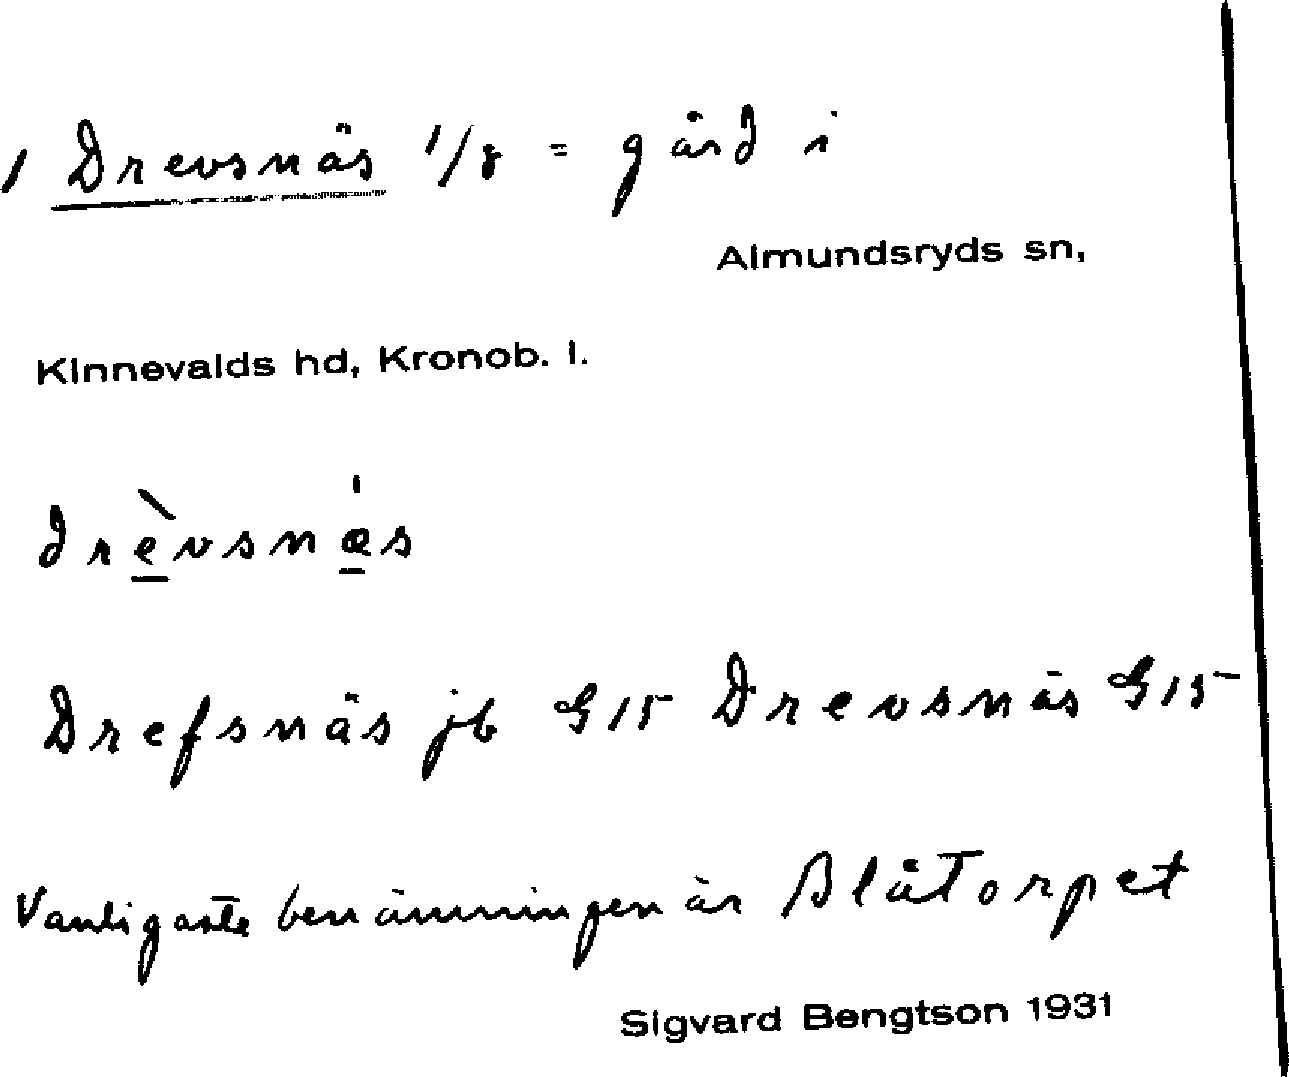 1 Drevsnäs 1/8 = gård i
Almundsryds sn,
Kinnevalds hd, Kronob. l.
drèvsnæ̍s
Drefsnäs jb G15 Drevsnäs G15
Vanligaste benämningen är Blåtorpet
Sigvard Bengtson 1931